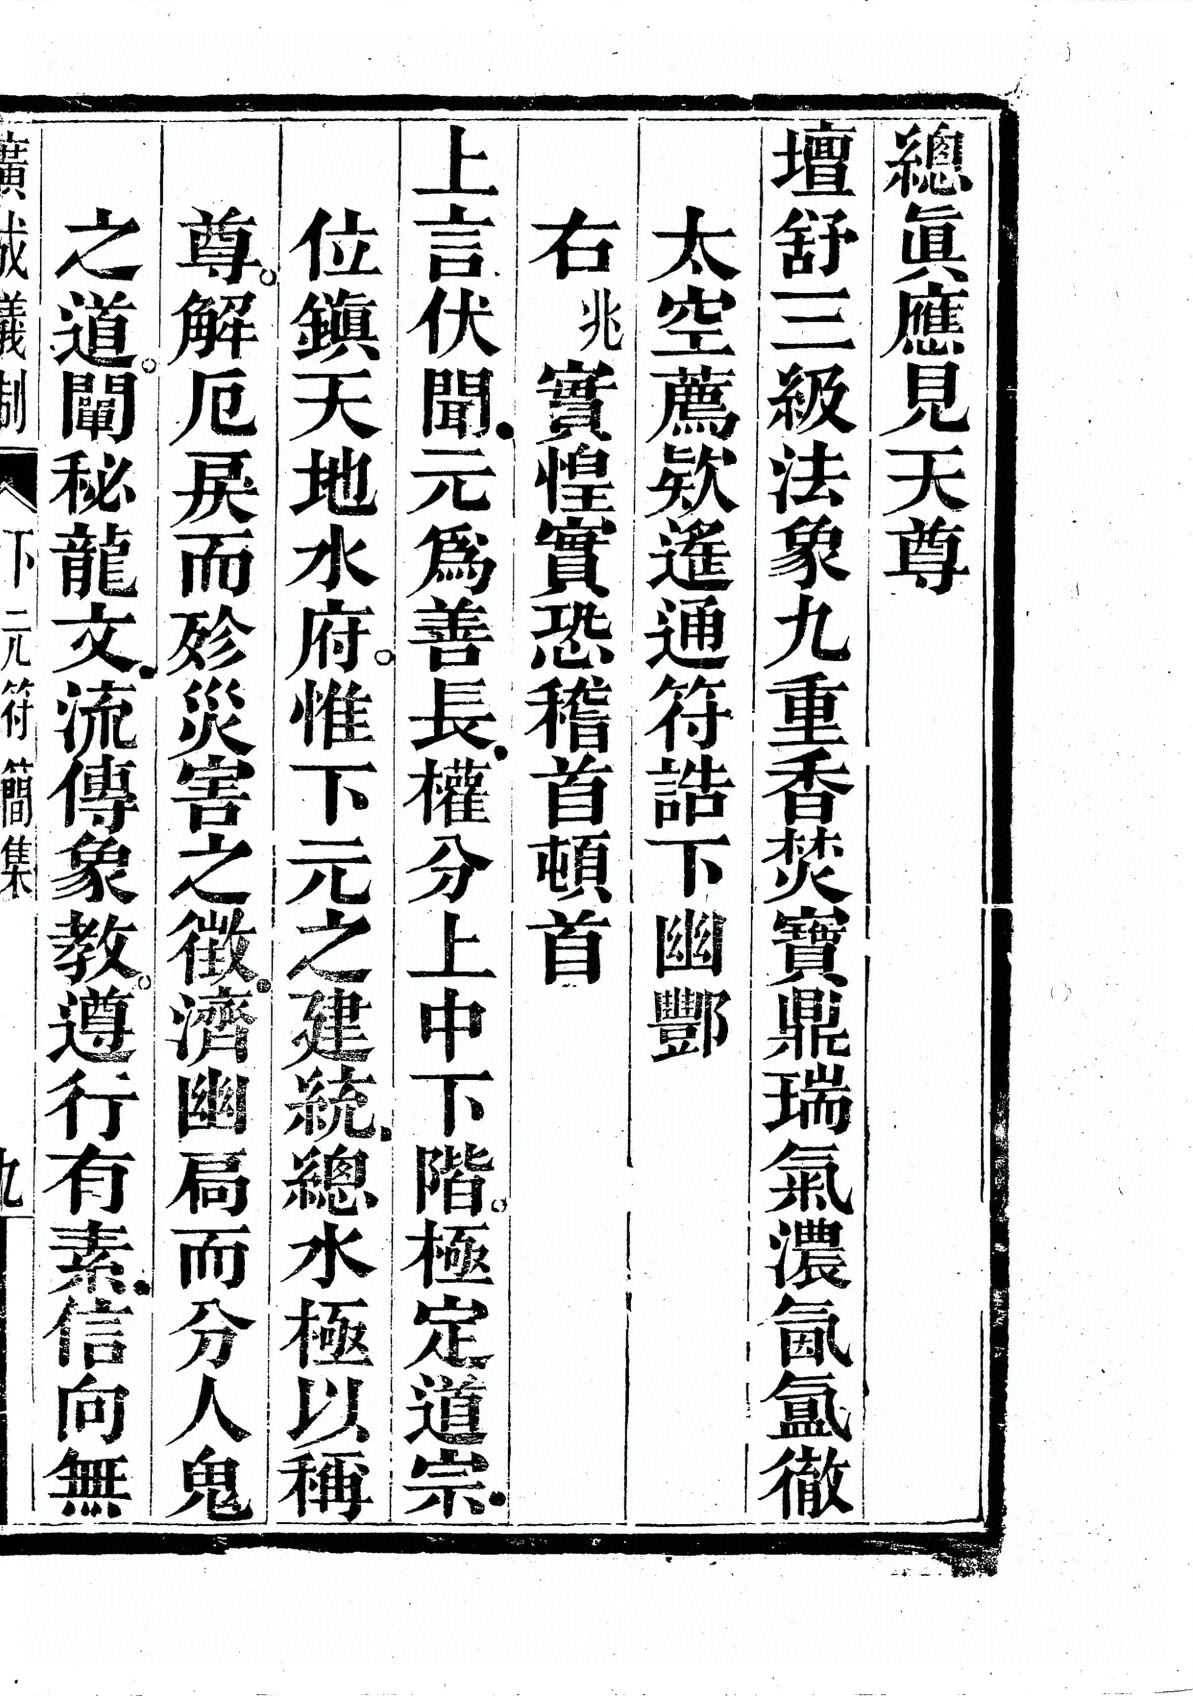 總眞應見天尊
壇舒三級法象九重香焚寶鼎瑞氣濃氤氳徹
太空薦欵遙通符誥下幽酆
右兆實惶實恐稽首頓首
上言伏聞元爲善長權分上中下階極定道宗
位鎭天地水府惟下元之建統總水極以稱
尊解厄戾而殄災害之徵濟幽局而分人鬼
之道闡秘龍文流傳象教遵行有素信向無
廣成儀制 下元符簡集 九